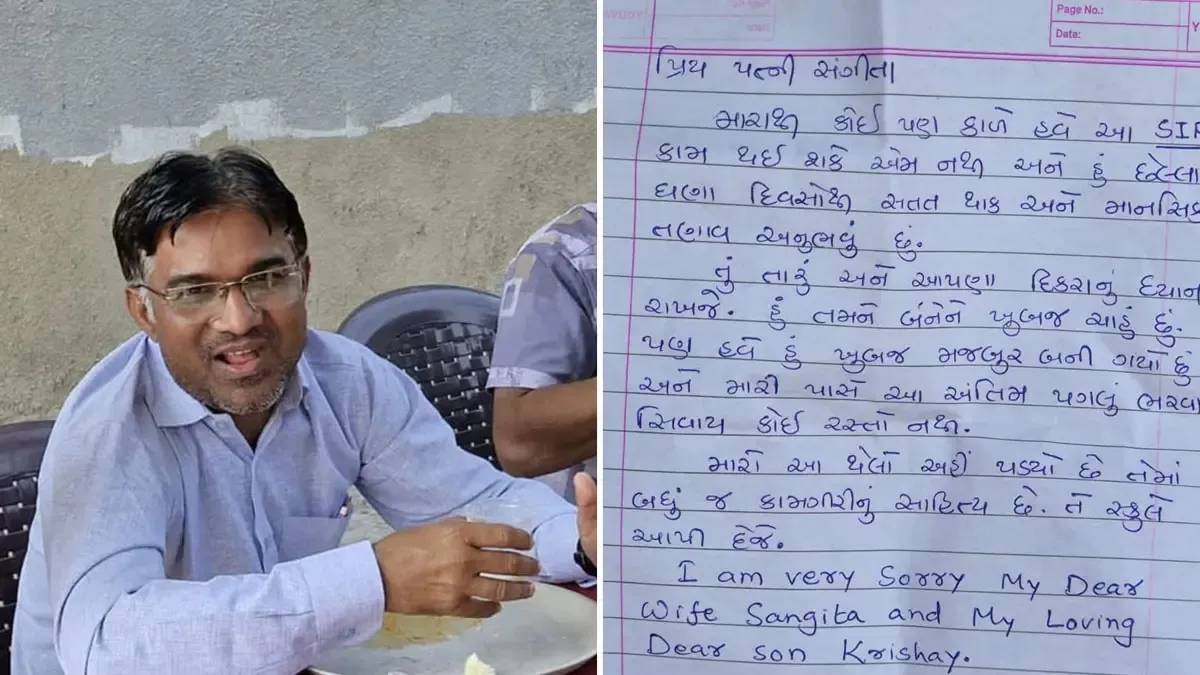 Page No.:
Date:
Y
પ્રિય પત્ની સંગીતા
મારાથી કોઈ પણ કાળે હવે આ SIR
કામ થઈ શકે એમ નથી અને હું છેલ્લા
ઘણા દિવસોથી સતત થાક અને માનસિક
તણાવ અનુભવું છું.
તું તારું અને આપણા દિકરાનું ધ્યાન
રાખજે. હું તમને બંનેને ખુબજ ચાહું છું.
પણ હવે હું ખુબજ મજબુર બની ગયો છું
અને મારી પાસે આ અંતિમ પગલું ભરવા
સિવાય કોઈ રસ્તો નથી.
મારો આ થેલો અહીં પડયો છે તેમાં
બધું જ કામગીરીનું સાહિત્ય છે. તે સ્કુલે
આપી દેજે.
I am very Sorry My Dear
Wife Sangita and My Loving
Dear son Krishay.